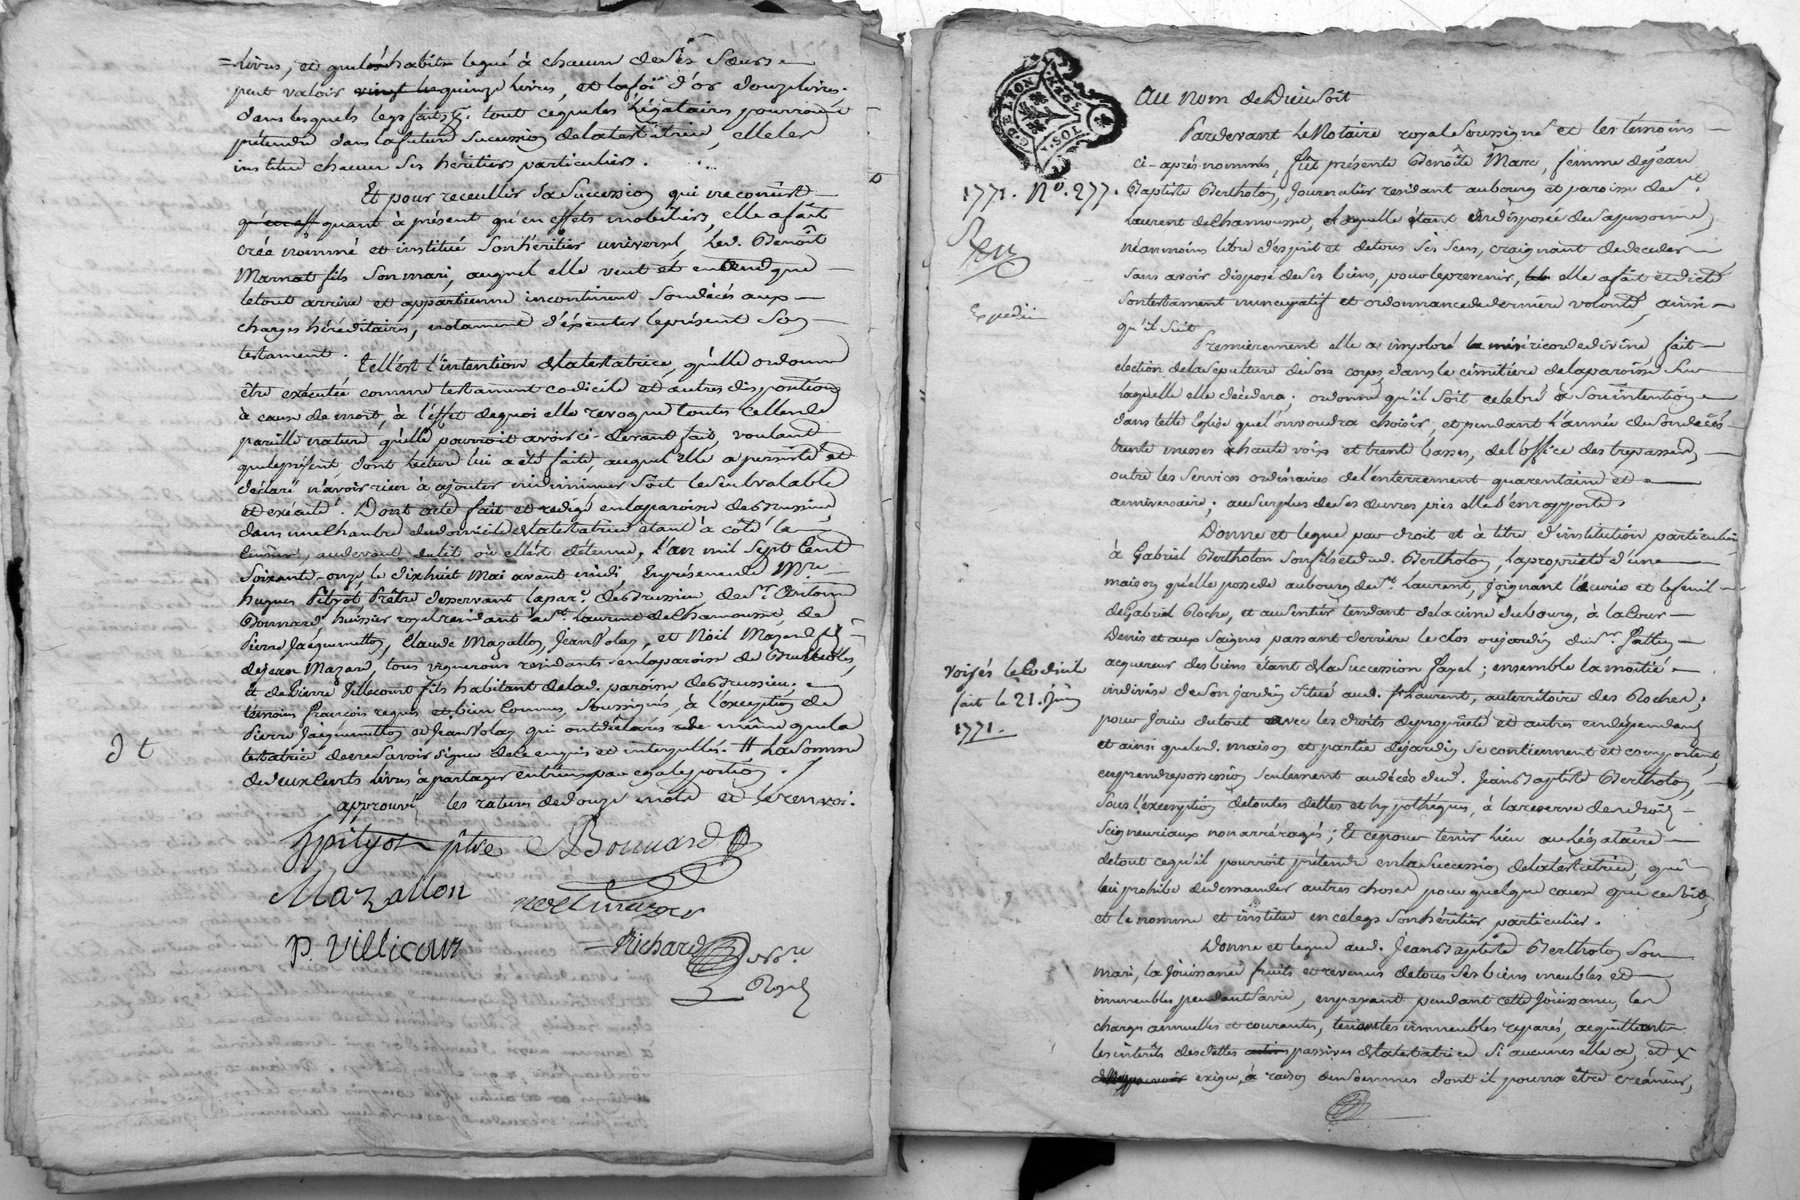 =livres, et que les habits legué à chacun de ses sœurs
peut valoir vingt le quinze livres, et la foi d'or douze livres.
dans lesquels legs faits tout ce que les légataires pourroient
prétendre dans la future succession de la testatrice, elle les
institue chacun ses héritiers particuliers.
Et pour receuillir sa succession qui ne consiste
quant à présent qu'en effets mobiliers, elle a fait
créé nommé et institué son héritier universel, led. Benoît
Marnat fils son mari, auquel elle veut et entend que
le tout arrive et appartienne incontinent son décès aux
charges héréditaires, notament d'éxécuter le présent son
testament.
Telle est l'intention de la testatrice, qu'elle ordonne
être exécutée comme testament codicile et autres dispositions
à cause de mort, à l'effet de quoi elle revoque toutes celles de
pareille nature qu'elle pourroit avoir ci-devant fait, voulant
que le présent, dont lecture lui a été faite, auquel elle a persisté et
déclaré n'avoir rien à ajouter ni diminuer soit le seul valable
et exécuté. Dont acte fait et rédigé en la paroisse de Brussieu,
dans une chambre du domicile de la testatrice étant à côté la
cuisine, au devant du lit où elle est détenue, l'an mil sept cent
soixante-onze, le dix huit Mai avant midi, En présence de Mre
hugues Pityot Prêtre desservant la par.e de Brussieu de Sr. Antoine
Bonnard huissier royal residant à St. Laurent de Chamousset, de
Pierre Jacquemetton, Claude Mazallon, Jean Volay, et Noël Mazard fils
de Jean Mazard, tous vignerons residants en la paroisse de Brullioles,
et de Pierre Villecourt fils habitant de lad. paroisse de Brussieu.
témoins françois requis et bien connus, soussignés, à l'exception de
Pierre Jacquemetton et Jean Volay qui ont déclarés de même que la
testatrice de ne savoir signer de ce enquis et interpellés. # La somme
de deux cents livres à partager entreux par egale portion.
approuvé les ratures de douze mots et le renvoi.
Hpityot ptre ABonnard
Mazallon noel mazard
P. villicour =Richard Nore
Royal
Au nom de Dieu soit
G. DE LYON SOL
Pardevant Le Notaire royal soussigné et les témoins
ci-après nommés, fut présente Benoîte Marc, femme de Jean
1771. No. 277. Baptiste Bertholon, Journalier residant au bourg et paroisse de St.
Laurent de Chamousset, laquelle étant indisposée de sa personne,
néanmoins libre d'esprit et de tous ses sens, craignant de deceder
sans avoir disposé de ses biens, pour le prevenir, elle a fait et dicté
son testament nuncupatif et ordonnance de dernière volonté, ainsi
Expédié
qu'il suit
Premierement elle a imploré la miséricorde divine fait
election de la sepulture de son corps dans le cimitière de la paroisse sur
laquelle elle décédera; ordonne qu'il soit celebré à son intention
dans telle Eglise que l'on voudra choisir, et pendant l'année de son décès
trente messes à haute voix et trente basses, de l'office des trepassés,
outre les services ordinaires de l'enterrement quarentaine et
anniversaire; au surplus de ses œuvres pies elle s'en rapporte.
Donne et legue par droit et à titre d'institution particulière
à Gabriel Bertholon son fils et dud. Bertholon, la proprieté d'une
maison qu'elle possede au bourg de St. Laurent, joignant l'écurie et le fenil
de Gabriel Roche, et au sentier tendant de la cime du bourg, à la Cour
Denis et aux Saignes passant derrière le clos ou jardin du Sr. Jathion
acquereur des biens étant de la succession Fayel; ensemble la moitié
indivise de son jardin situé aud. St Laurent, au territoire des Roches;
Voyés le Codicile
fait le 21. Juin
1771.
pour jouir du tout avec les droits de proprieté et autres en dependants
et ainsi que lesd. maison et partie de jardin se contiennent et comportent,
en prendre possession seulement au décès dud. Jean Baptiste Bertholon,
sous l'exemption de toutes dettes et hypothéques, à la reserve des droits
seigneuriaux non arréragés; Et ce pour tenir lieu au légataire
de tout ce qu'il pourroit prétendre en la succession de la testatrice, qui
lui prohibe de demander autres choses pour quelque cause que ce soit,
et le nomme et institue en ce legs son héritier particulier.
Donne et legue aud. Jean Baptiste Bertholon son
mari, la jouissance fruits et revenus de tous ses biens meubles et
immeubles pendant sa vie, en payant pendant cette jouissance, les
charges annuelles et courantes, tenant les immeubles reparés, acquittant
les intérêts des dettes passives de la testatrice si aucunes elle a, et
exigera à raison des sommes dont il pourra être créancier,